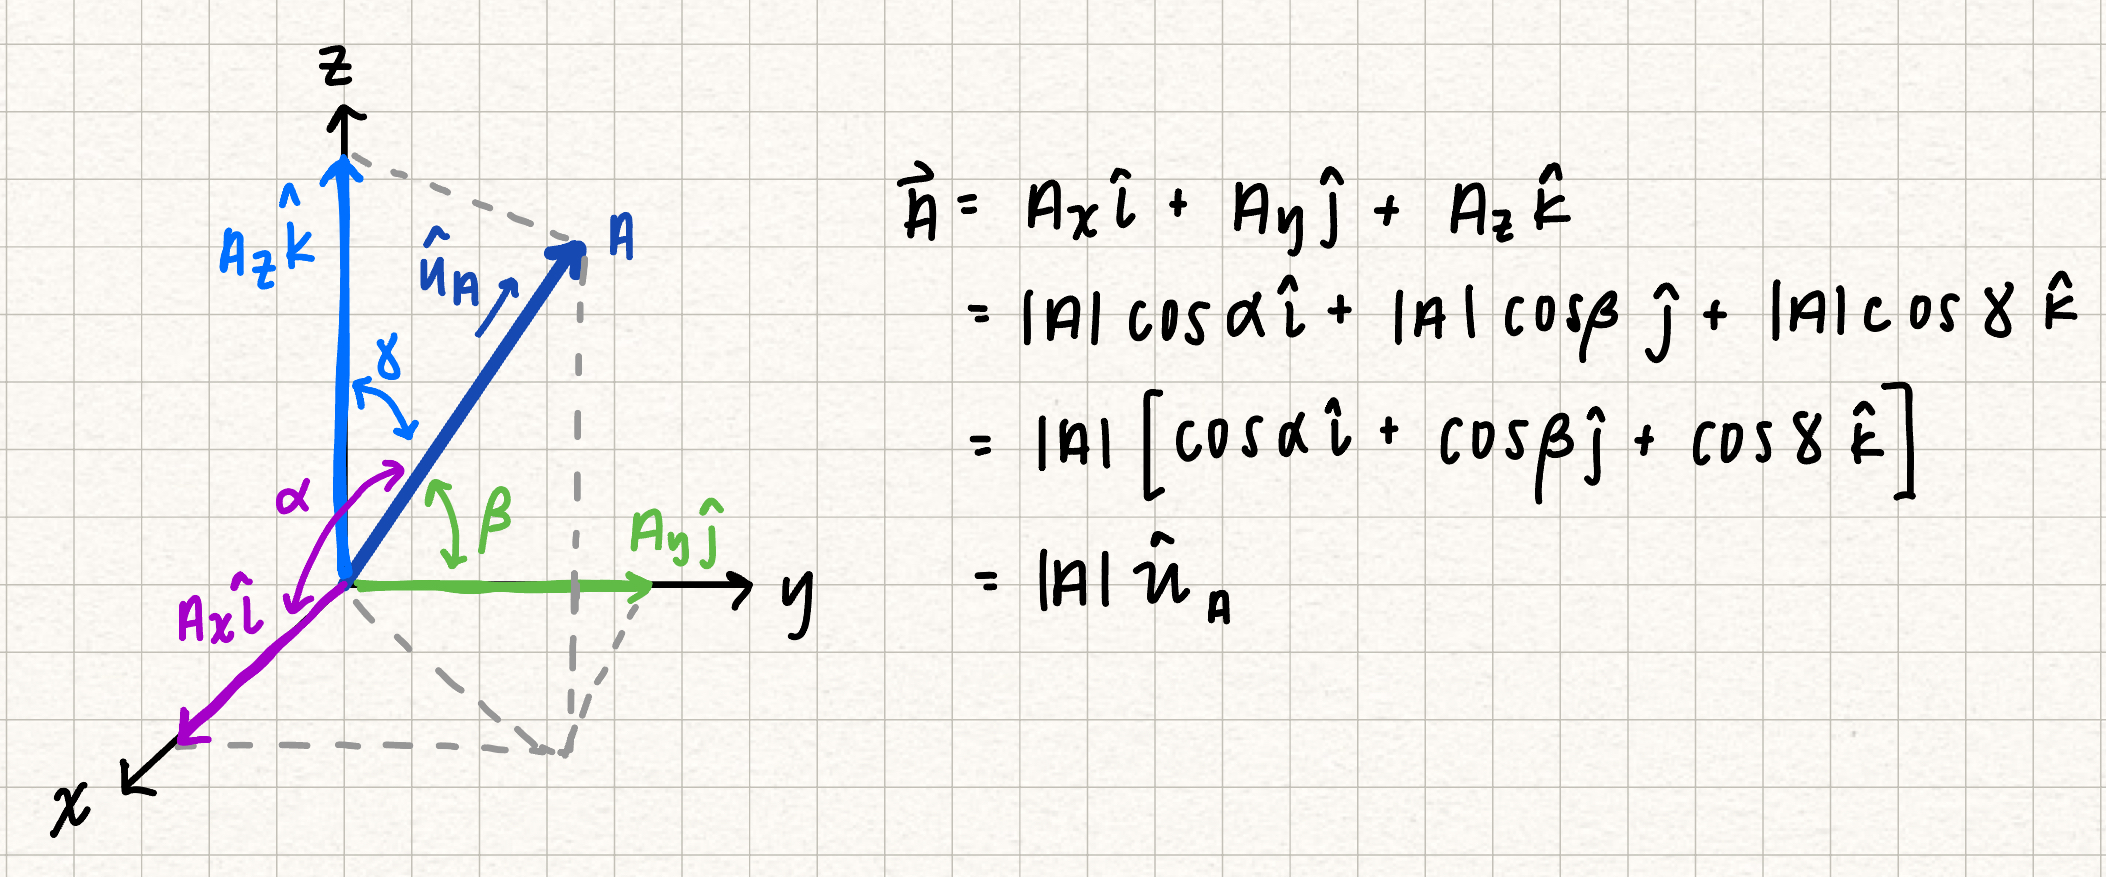 z
A_z k̂
û_A
A
γ
α
β
A_y ĵ
A_x î
y
x
A⃗ = A_x î + A_y ĵ + A_z k̂
= |A| cos α î + |A| cos β ĵ + |A| cos γ k̂
= |A| [cos α î + cos β ĵ + cos γ k̂]
= |A| û_A